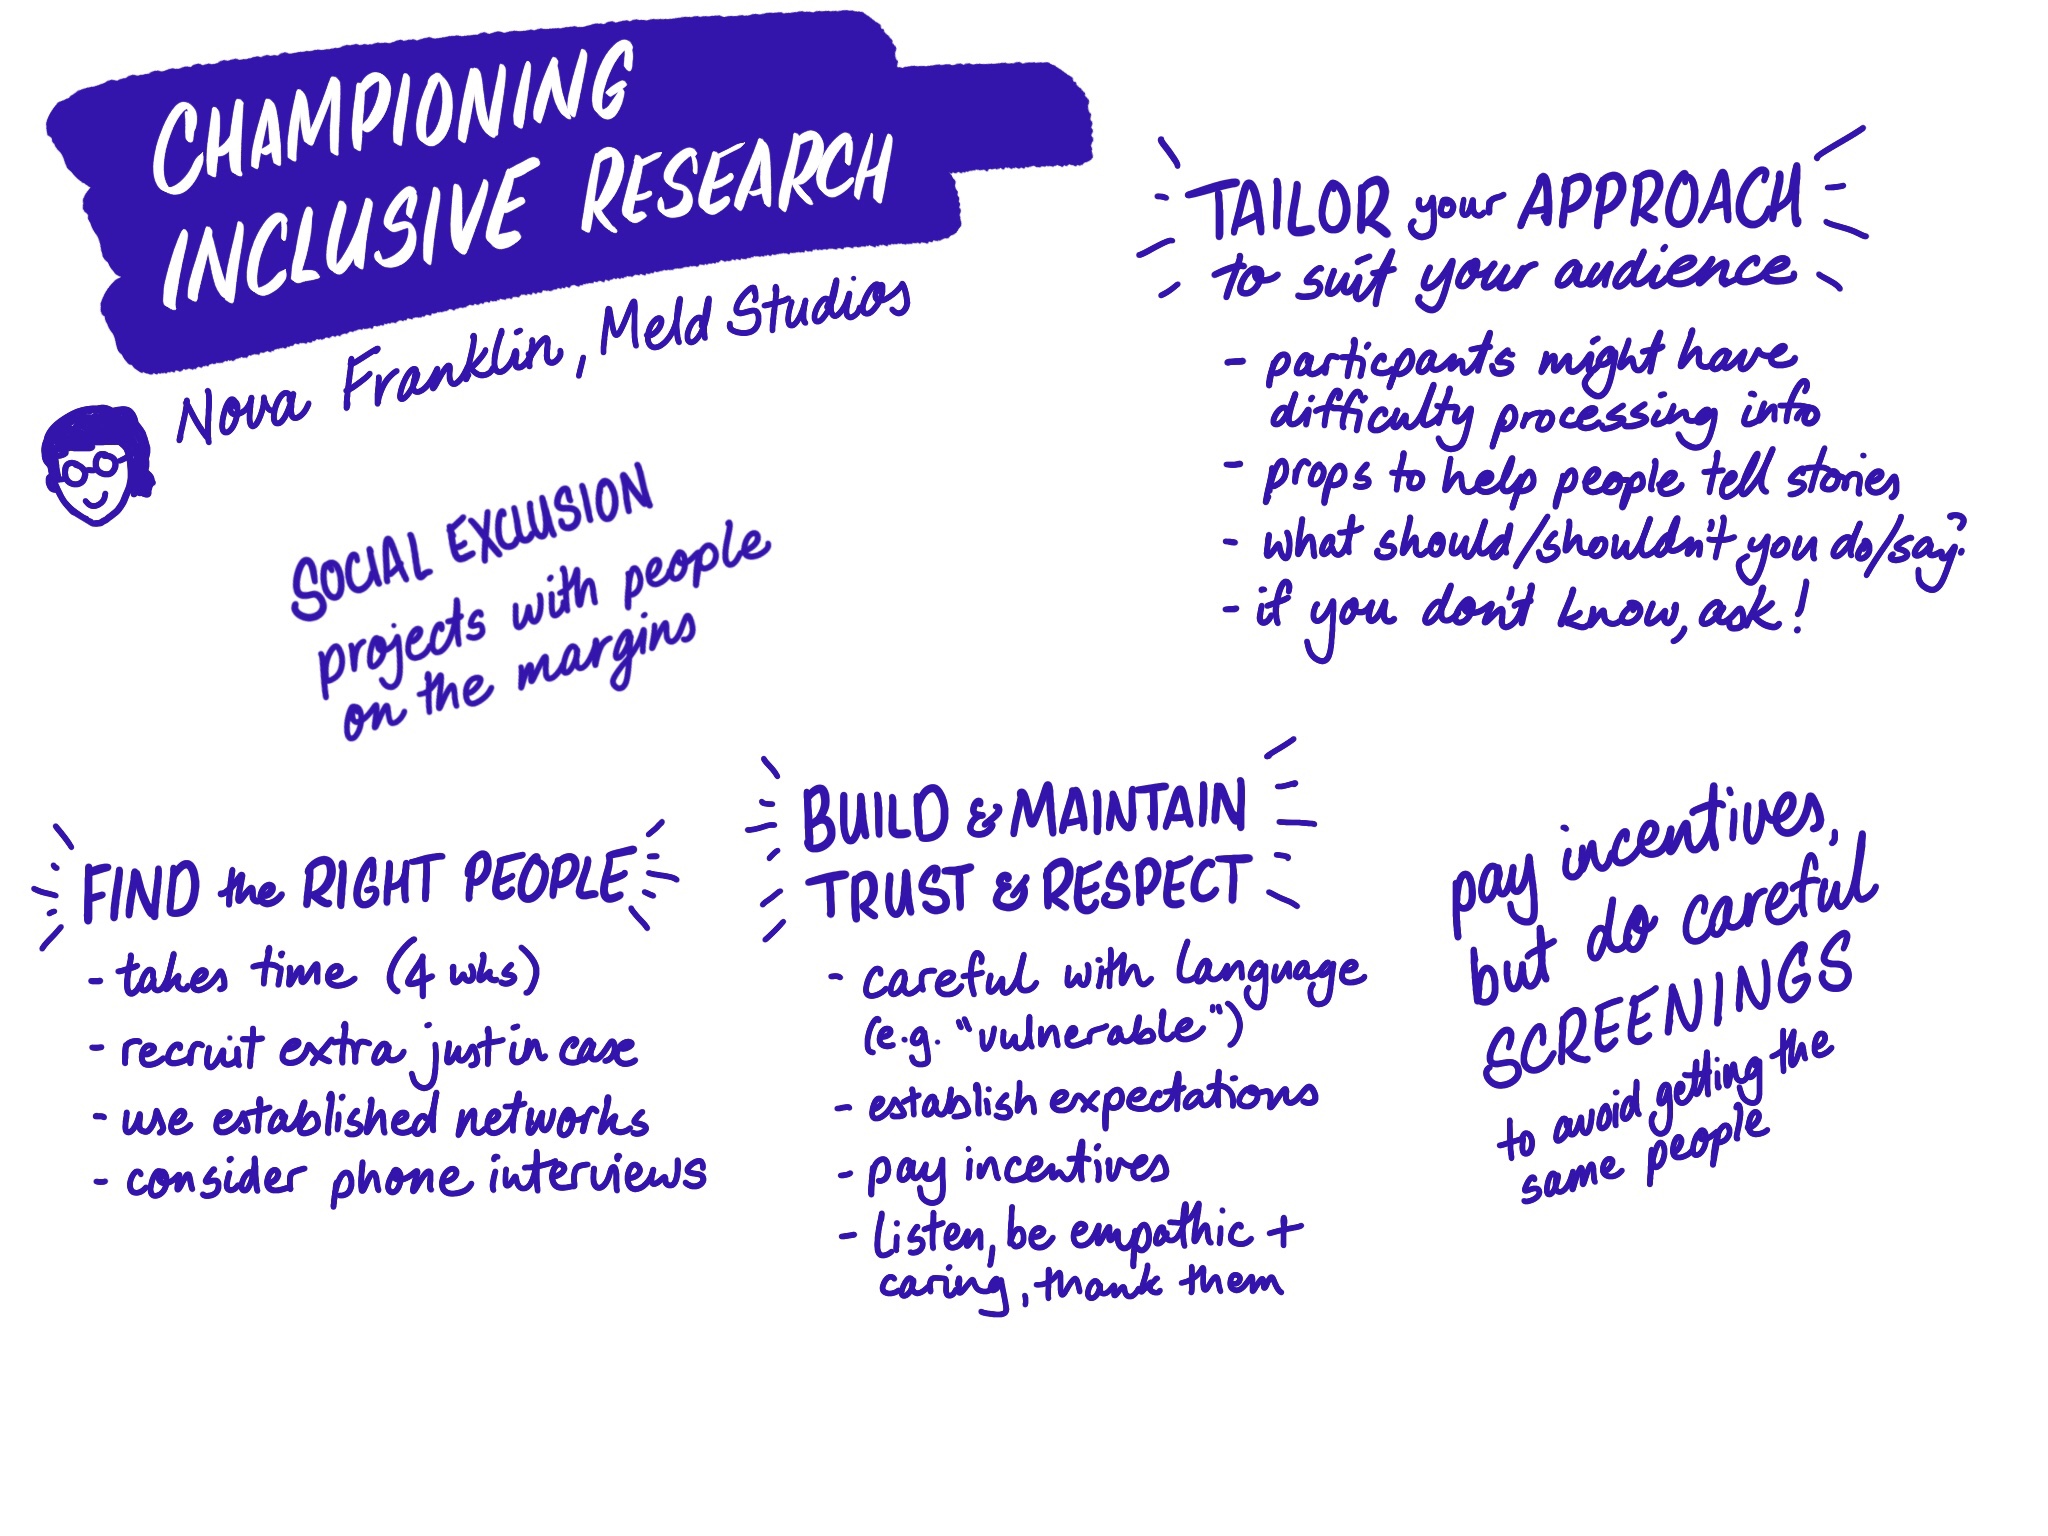 CHAMPIONING
INCLUSIVE RESEARCH
Nova Franklin, Meld Studios
SOCIAL EXCLUSION
projects with people
on the margins
TAILOR your APPROACH
to suit your audience
- particpants might have
difficulty processing info
- props to help people tell stories
- what should/shouldn't you do/say?
- if you don't know, ask!
FIND the RIGHT PEOPLE
- takes time (4 wks)
- recruit extra just in case
- use established networks
- consider phone interviews
BUILD & MAINTAIN
TRUST & RESPECT
- careful with language
(e.g. "vulnerable")
- establish expectations
- pay incentives
- listen, be empathic +
caring, thank them
pay incentives,
but do careful
SCREENINGS
to avoid getting the
same people